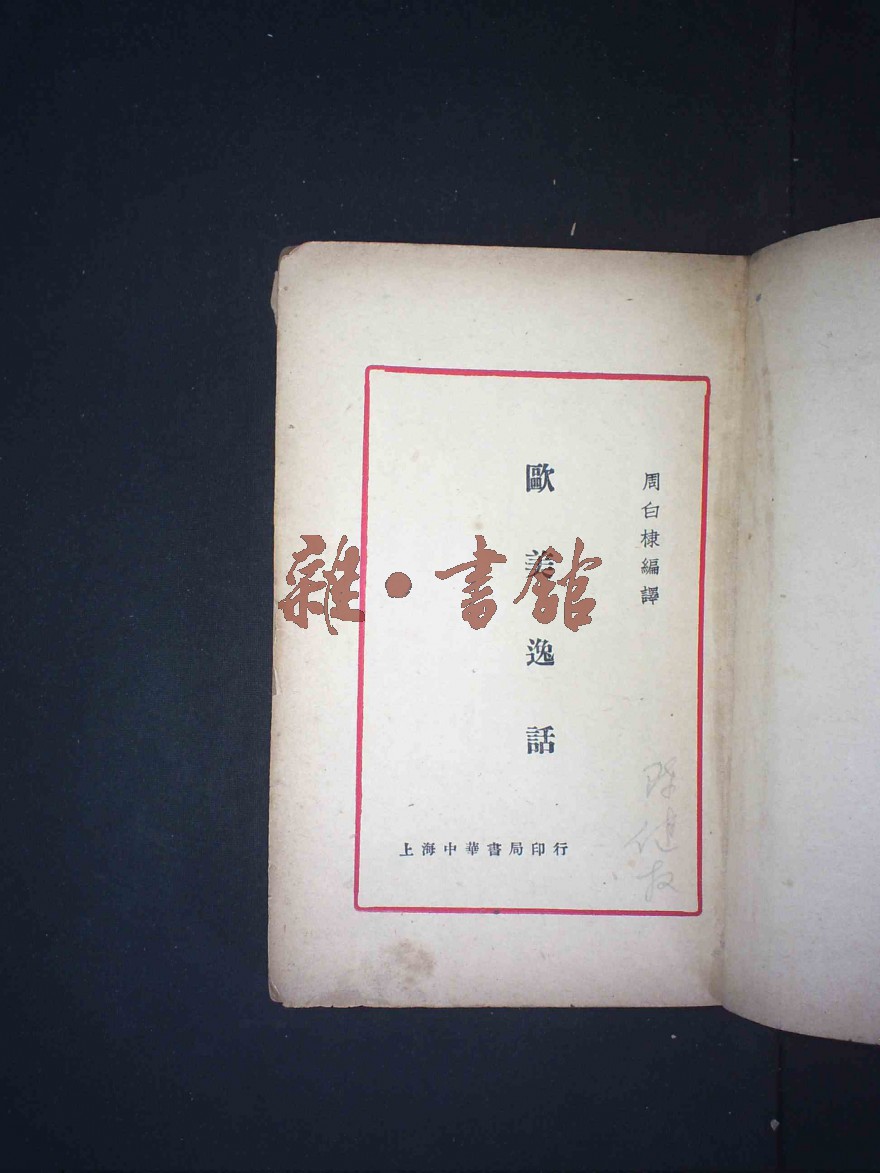 周白棣編譯
歐美逸話
上海中華書局印行
雜·書館